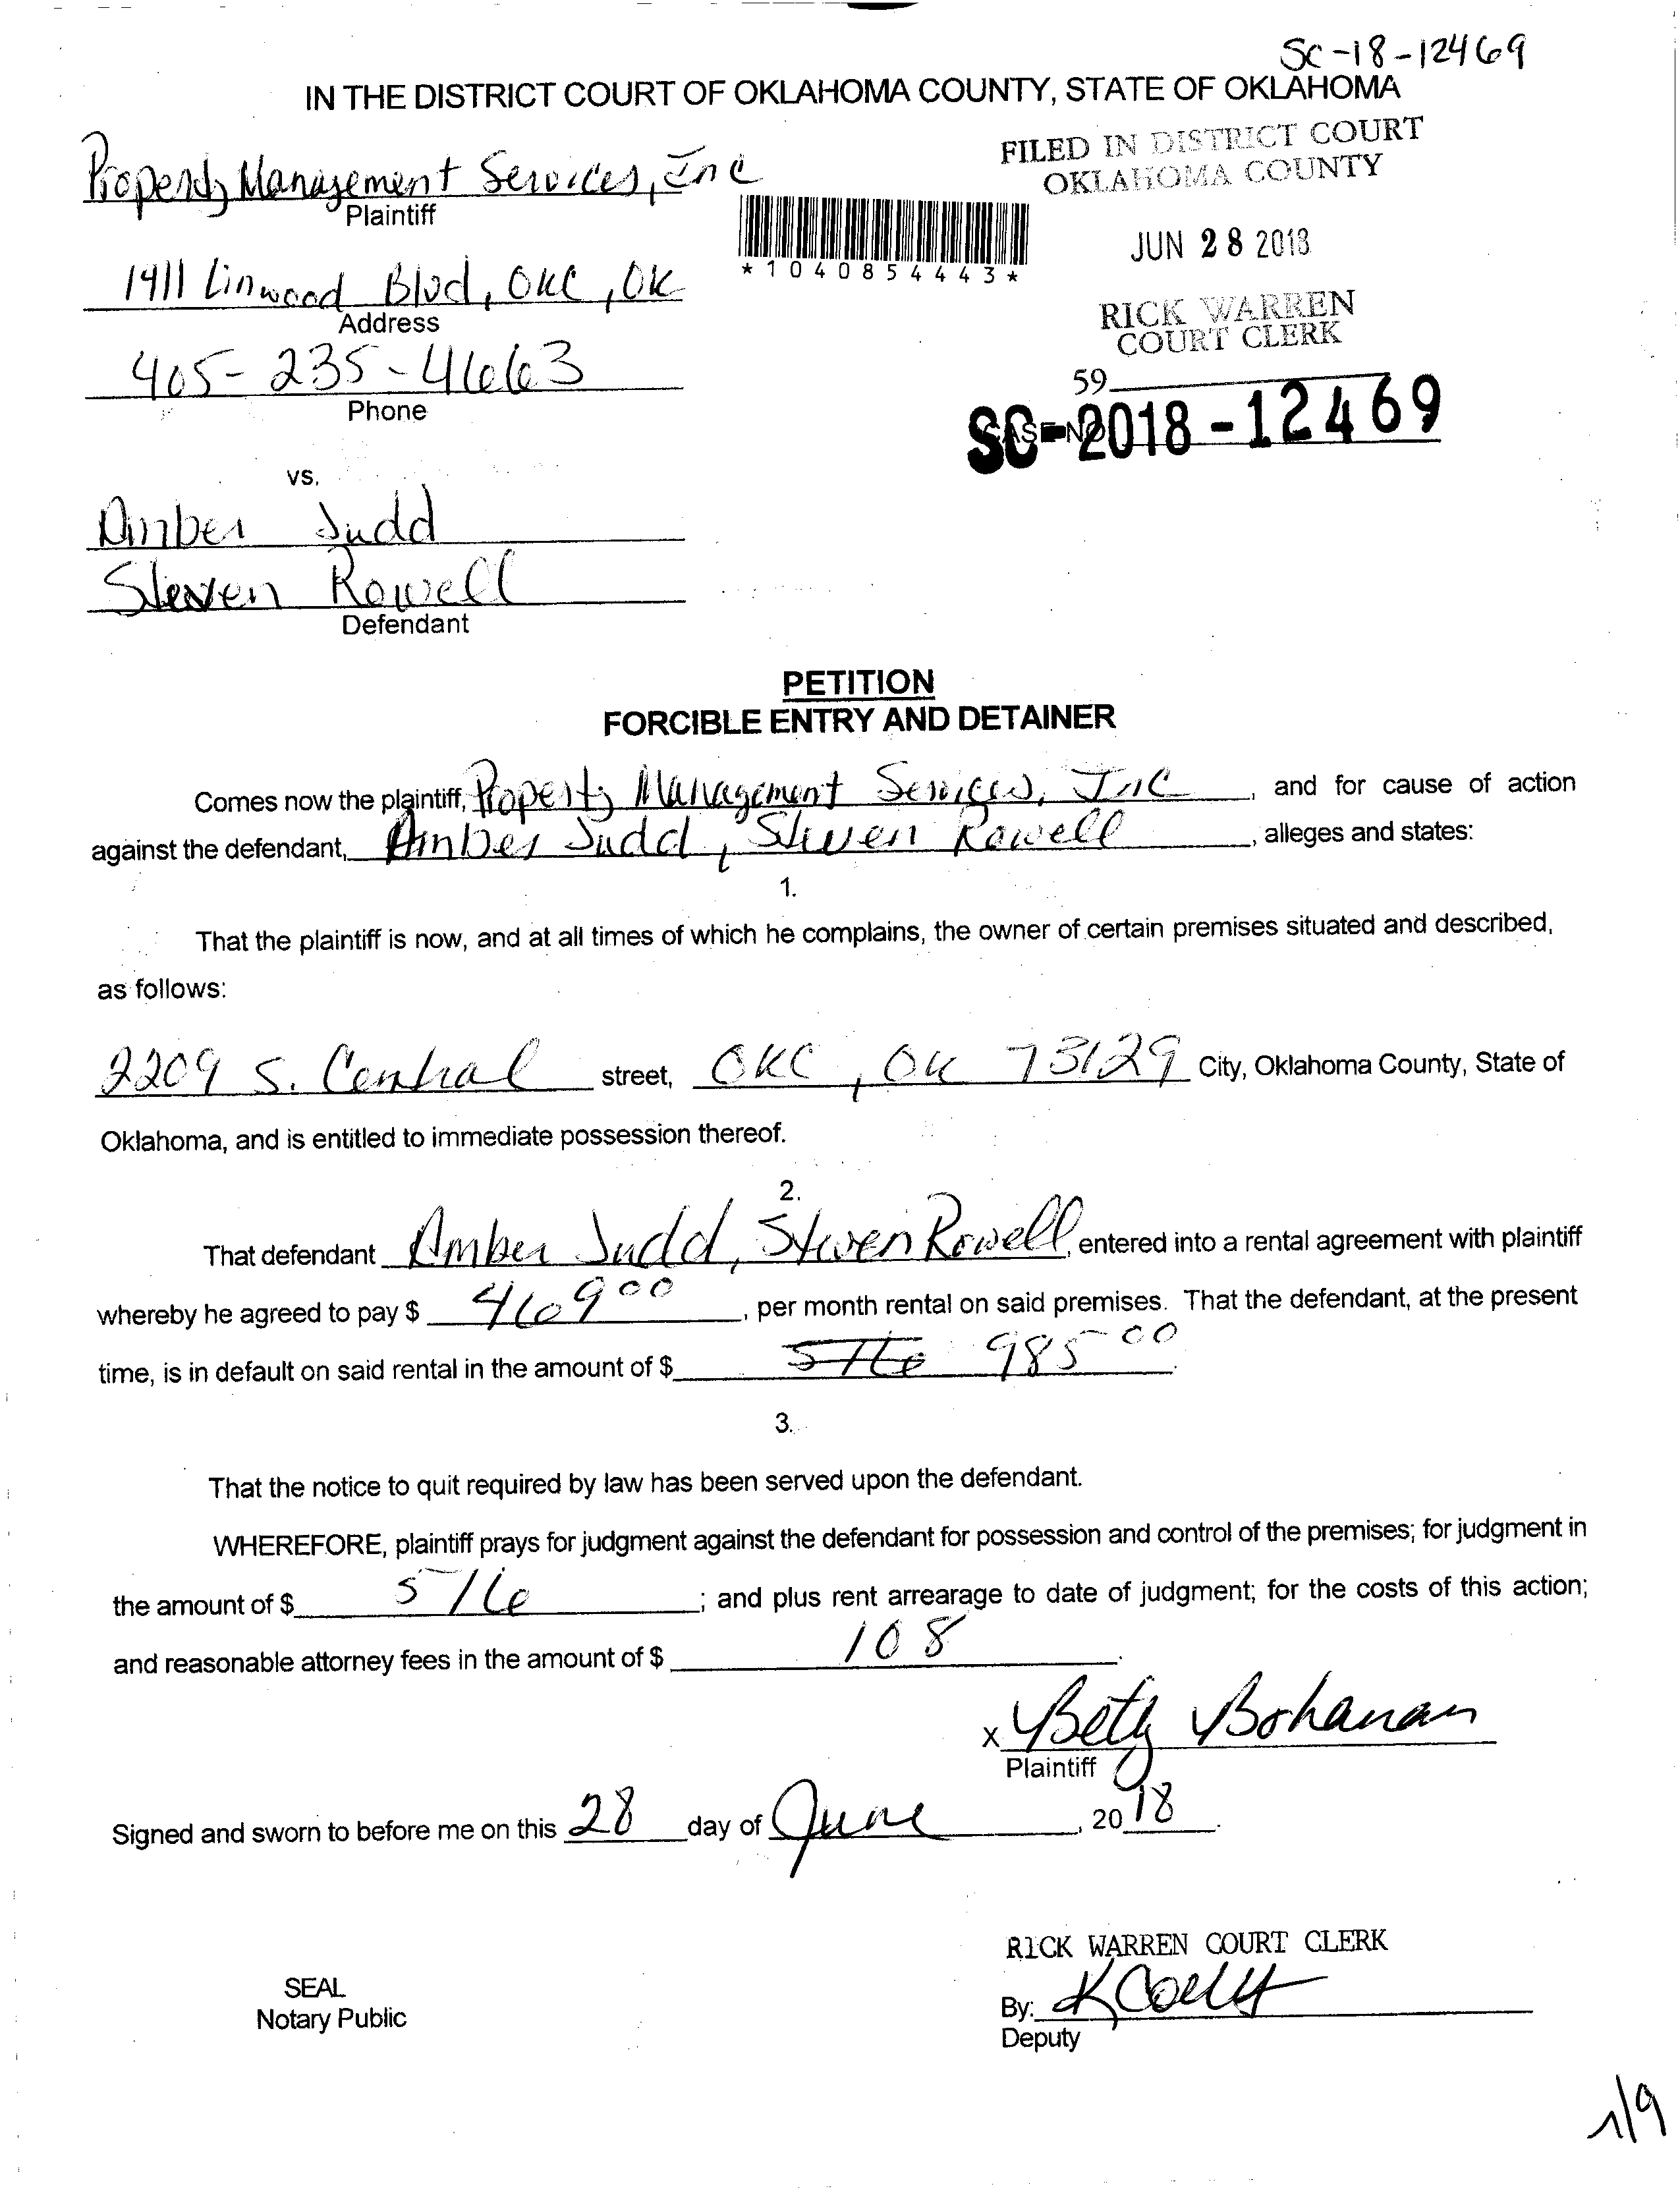 SC-18-12469
IN THE DISTRICT COURT OF OKLAHOMA COUNTY, STATE OF OKLAHOMA
Property Management Services, Inc
Plaintiff
FILED IN DISTRICT COURT
OKLAHOMA COUNTY
JUN 28 2018
*1040854443*
1911 Linwood Blvd, OKC, OK
Address
RICK WARREN
COURT CLERK
405-235-4663
Phone
59
CASE NO
SC-2018-12469
vs.
Amber Judd
Steven Rowell
Defendant
PETITION
FORCIBLE ENTRY AND DETAINER
Comes now the plaintiff, Property Management Services, Inc, and for cause of action
against the defendant, Amber Judd, Steven Rowell, alleges and states:
1.
That the plaintiff is now, and at all times of which he complains, the owner of certain premises situated and described,
as follows:
2209 S. Central street, OKC, OK 73129 City, Oklahoma County, State of
Oklahoma, and is entitled to immediate possession thereof.
2.
That defendant Amber Judd, Steven Rowell, entered into a rental agreement with plaintiff
whereby he agreed to pay $ 469 00, per month rental on said premises. That the defendant, at the present
time, is in default on said rental in the amount of $ 516 985 00.
3.
That the notice to quit required by law has been served upon the defendant.
WHEREFORE, plaintiff prays for judgment against the defendant for possession and control of the premises; for judgment in
the amount of $ 516; and plus rent arrearage to date of judgment; for the costs of this action;
and reasonable attorney fees in the amount of $ 108.
x Betty Bohanan
Plaintiff
Signed and sworn to before me on this 28 day of June, 2018.
RICK WARREN COURT CLERK
SEAL
Notary Public
By:
Deputy